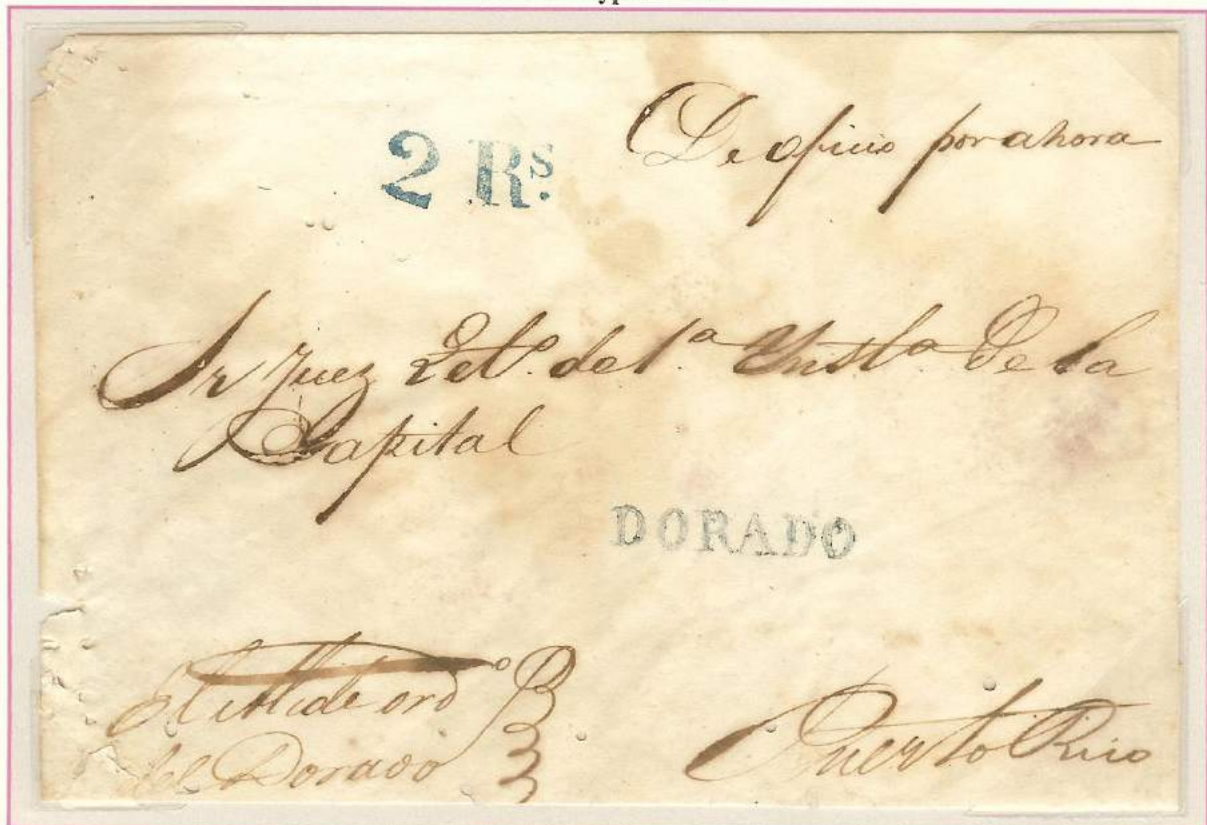 De oficio por ahora
2 Rs.
Sr Juez Let.º de 1.ª Inst.ª de la
Capital
DORADO
El Alcalde ord.º
del Dorado
Puerto Rico